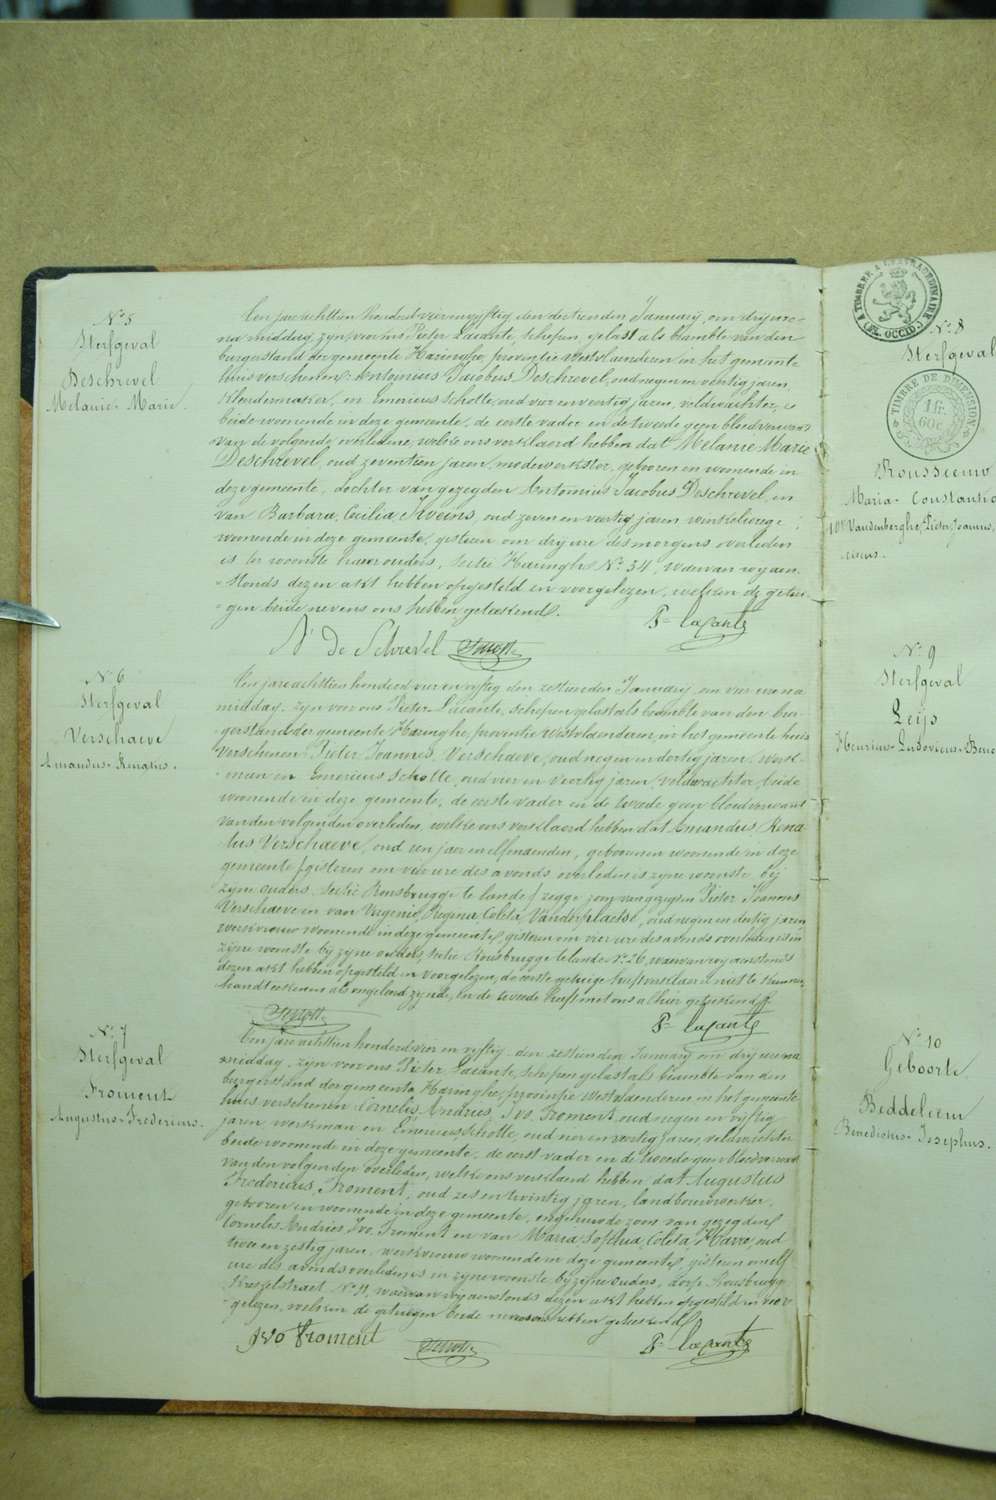 N° 5
Sterfgeval
Deschrevel
Melanie Marie.
Een jaer achttien honderd vier en vyftig den dertienden January, om dry ure
na middag zyn voor ons Pieter Lacante, schepen, gelast als beambte van den
burgerstand der gemeente Haringhe, provintie Westvlaenderen in het gemeente
huis verschenen Antonius Jacobus Deschrevel, oud negen en veertig jaren,
en Emericus Scholte, oud vier en veertig jaren, veldwachter,
beide woonende in deze gemeente, de eerste vader en de tweede geen bloedverwant
van de volgende overledene, welke ons verklaerd hebben dat Melanie Marie
Deschrevel, oud zeventien jaren, modewerkster, gebooren en woonende in
deze gemeente, dochter van gezegden Antonius Jacobus Deschrevel, en
van Barbara Cecilia, oud zeven en veertig jaren
woonende in deze gemeente, gisteren om dry ure des morgens overleden
is ter woonste haerer ouders, sectie Haringhe N° 34, waervan wy aen
stonds dezen akt hebben opgesteld en voorgelezen, welken de getui
gen beide nevens ons hebben geteekend.
P. Lacante
A. De Schrevel Scholte
N° 6
Sterfgeval
Verschaeve
Amandus Renatus.
Een jaer achttien honderd vier en vyftig den zestienden January, om vier ure na
middag, zyn voor ons Pieter Lacante, schepen gelast als beambte van den bur
gerstand der gemeente Haringhe, provintie Westvlaenderen, in het gemeente huis
verschenen Pieter Joannes Verschaeve, oud negen en dertig jaren, werk
man en Emericus Scholte, oud vier en veertig jaren, veldwachter, beide
woonende in deze gemeente, de eerste vader en de tweede geen bloedverwant
van den volgenden overleden, welke ons verklaerd hebben dat Amandus Rena
tus Verschaeve, oud een jaer en elf maenden, gebooren en woonende in deze
gemeente gisteren om vier ure des avonds overleden is zyne woonste by
zyne ouders, sectie Rousbrugge te lande zegge zoon van gezegden Pieter Joannes
Verschaeve en van Virginie Regina Coleta Vanderplaetse, oud negen en dertig jaren
werkvrouw woonende in deze gemeente, gisteren om vier ure des avonds overleden is in
zyne woonste by zyne ouders, sectie Rousbrugge te lande N° 26, waervan wy aenstonds
dezen akt hebben opgesteld en voorgelezen, de eerste getuige heeft verklaerd niet te kunnen
handteekenen als ongeleerd zynde, en de tweede heeft met ons alhier geteekend
Scholte P. Lacante
N° 7
Sterfgeval
Froment
Augustus Fredericus.
Een jaer achttien honderd vier en vyftig den zestienden January om dry ure na
middag, zyn voor ons Pieter Lacante, schepen gelast als beambte van den
burgerstand der gemeente Haringhe, provintie Westvlaenderen in het gemeente
huis verschenen Cornelis Andries, Ivo Froment, oud negen en vyftig
jaren werkman en Emericus Scholte, oud vier en veertig jaren, veldwachter
beide woonende in deze gemeente, de eerst vader en de tweede geen bloedverwant
van den volgenden overleden, welke ons verklaerd hebben dat Augustus
Fredericus Froment, oud zes en twintig jaren, landbouwwerker,
gebooren en woonende in deze gemeente, ongehuwde zoon van gezegden
Cornelis Andries Ivo Froment en van Maria Sophia Coleta Havre, oud
twee en zestig jaren, werkvrouw woonende in deze gemeente, gisteren om elf
ure des avonds overleden is in zyne woonste by zyne ouders, dorp Rousbrugge
N° 11, waervan wy aenstonds dezen akt hebben opgesteld en voor
gelezen, welken de getuigen beide nevens ons hebben geteekend
Ivo Froment Scholte P. Lacante
TIMBRE A L'EXTRAORDINAIRE
(FL. OCCID.)
N° 8
Sterfgeval
TIMBRE DE DIMENSION
1 fr.
60c
Rousseeuw
Maria Constantia
Vandenberghe, Pieter Joannes
N° 9
Sterfgeval
Leys
Henricus Ludovicus Bene
N° 10
Geboorte
Beddeleem
Benedictus Josephus.